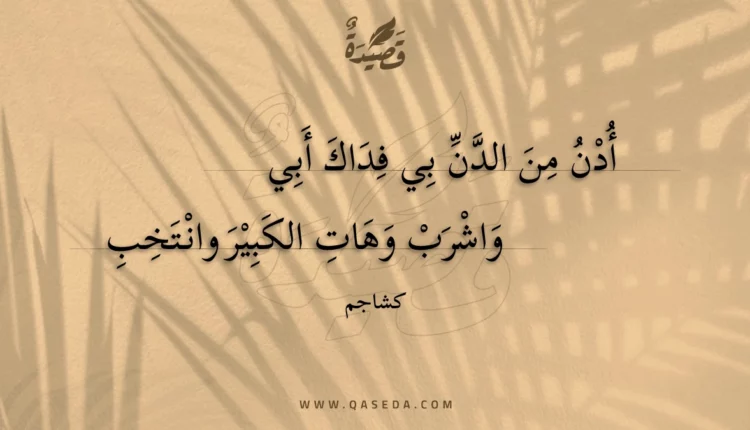 قَصِيْدَةٌ
أُدْنُ مِنَ الدَّنِّ بِي فِدَاكَ أَبِي
وَاشْرَبْ وَهَاتِ الكَبِيْرَ وانْتَخِبِ
كشاجم
WWW.QASEDA.COM